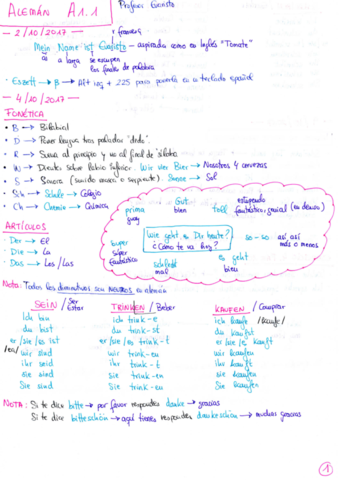 ALEMÁN A1.1
Profesor Evaristo
— 2/10/2017 —
Mein Name ist Evaristo → aspirada como en inglés "Tomate"
a larga se escupen
los finales de palabra
· Eszett → β → Alt izq + 225 para ponerla en el teclado español
— 4/10/2017 —
FONÉTICA
· B → Bilabial
· D → Poner lengua tras paladar "dedo"
· R → Suena al principio y no al final de sílaba
· W → Dientes sobre labio inferior. Wir vier Bier → Nosotros 4 cervezas
· S → Sonora (sonido mosca o serpiente) Sonne → Sol
· Sch → Schule → Colegio
· Ch → Chemie → Química
prima
guay
Gut
bien
toll
estupendo
fantástico, genial
super
súper
fantástico
Wie geht es Dir heute?
¿Cómo te va hoy?
so-so
así así
más o menos
schlecht
mal
es geht
bien
ARTÍCULOS
· Der → El
· Die → La
· Das → Los/Las
Nota: Todos los diminutivos son NEUTROS en alemán
SEIN / Ser Estar
TRINKEN / Beber
KAUFEN / Comprar
ich bin
ich trink-e
ich kaufe /kaufe/
du bist
du trink-st
du kaufst
er/sie/es ist
er/sie/es trink-t
er/sie/es kauft
wir sind
wir trink-en
wir kaufen
ihr seid
ihr trink-t
ihr kauft
sie sind
sie trink-en
sie kaufen
Sie sind
Sie trink-en
Sie kaufen
NOTA: Si te dice bitte → por favor respondes danke → gracias
Si te dice bitteschön → aquí tienes respondes dankeschön → muchas gracias
1